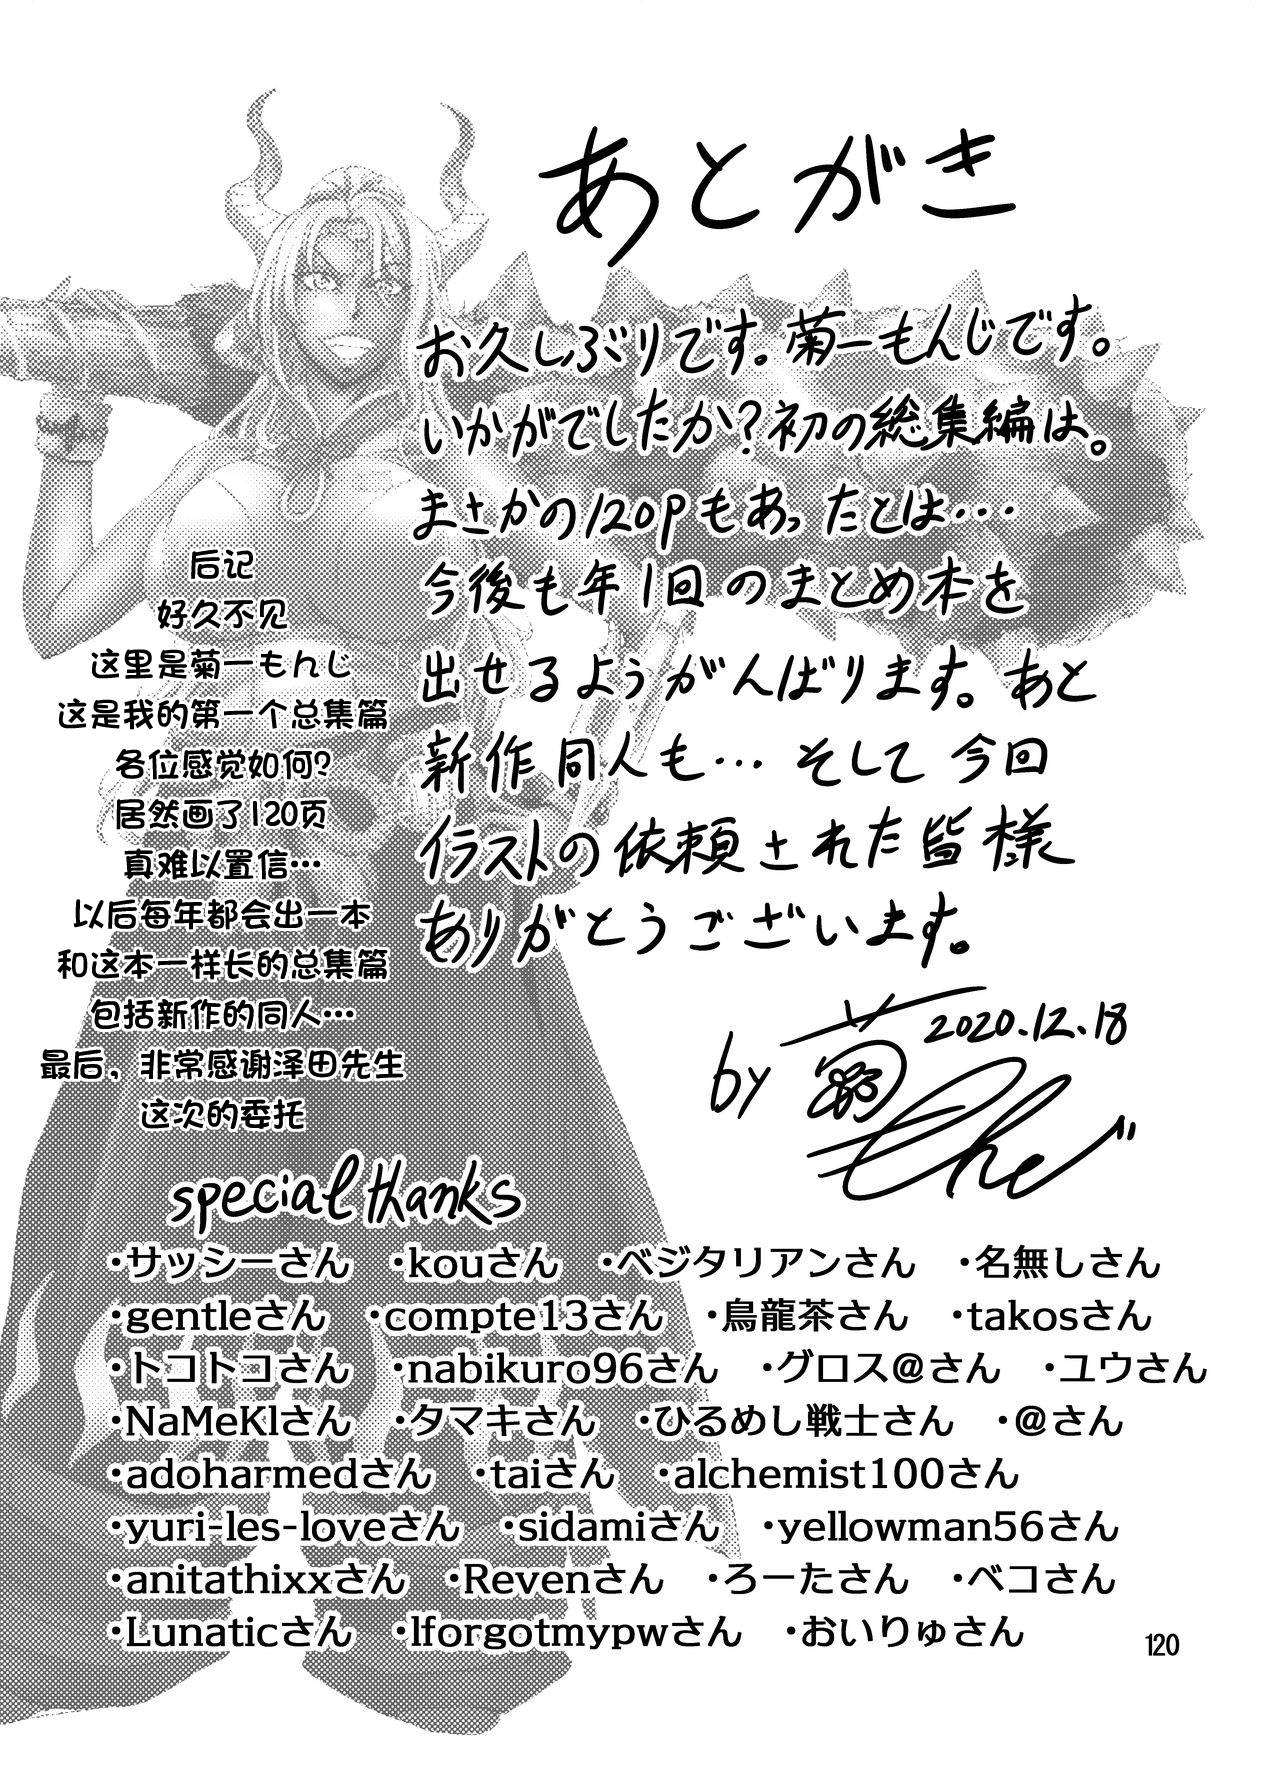 あとがき
お久しぶりです。菊一もんじです。
いかがでしたか?初の総集編は。
まさかの120Pもあったとは…
今後も年1回のまとめ本を
出せるようがんばります。あと
新作同人も…そして今回
イラストの依頼された皆様
ありがとうございます。
by 菊
2020.12.18
后记
好久不见
这里是菊一もんじ
这是我的第一个总集篇
各位感觉如何?
居然画了120页
真难以置信…
以后每年都会出一本
和这本一样长的总集篇
包括新作的同人…
最后，非常感谢泽田先生
这次的委托
special thanks
・サッシーさん ・kouさん ・ベジタリアンさん ・名無しさん
・gentleさん ・compte13さん ・烏龍茶さん ・takosさん
・トコトコさん ・nabikuro96さん ・グロス@さん ・ユウさん
・NaMeKlさん ・タマキさん ・ひるめし戦士さん ・@さん
・adoharmedさん ・taiさん ・alchemist100さん
・yuri-les-loveさん ・sidamiさん ・yellowman56さん
・anitathixxさん ・Revenさん ・ろーたさん ・ベコさん
・Lunaticさん ・lforgotmypwさん ・おいりゅさん
120